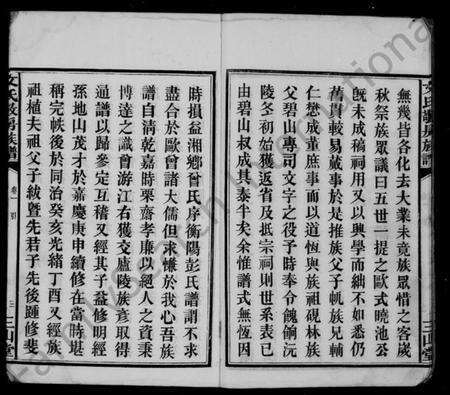 無幾皆各化去大業未竟族眾惜之客歲
秋祭族眾議曰五世一提之歐式曉池公
既未成稿祠用又以興學而絀不如悉仍
舊貫較易蕆事於是推族父子帆族兄輔
仁懋成董庶事而以道恆與族祖硯林族
父碧山專司文字之役予時奉令餽餉沅
陵冬初始獲返省及抵宗祠則世系表已
由碧山叔成其泰半矣余惟譜式無恆因
時損益湘鄉曾氏序衡陽彭氏譜謝不求
盡合於歐曾諸大儒但求慊於我心吾族
譜自清乾嘉時栗齋孝廉以絕人之資秉
博達之識曾游江右獲交廬陵族彥取得
通譜以歸參定互稽又經其子益修明經
孫地山茂才於嘉慶庚申續修在當時堪
稱完帙後於同治癸亥光緒丁酉又經族
祖植夫祖父子紱暨先君子先後踵修斐
文氏敦厚族譜
卷一
三
三山堂
三山堂